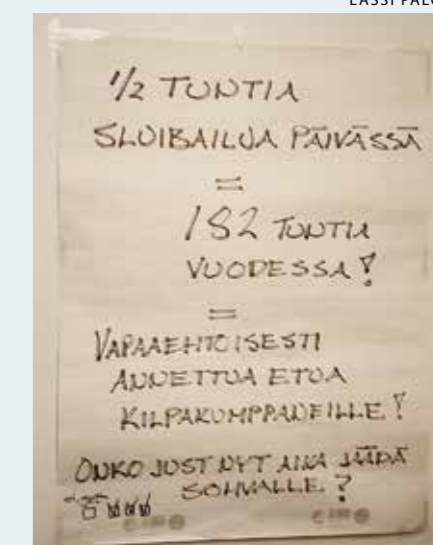 ½ TUNTIA
SLUIBAILUA PÄIVÄSSÄ
=
182 TUNTIA
VUODESSA!
=
VAPAAEHTOISESTI
ANNETTUA ETUA
KILPAKUMPPANEILLE!
ONKO JUST NYT AIKA JÄÄDÄ
SOHVALLE?